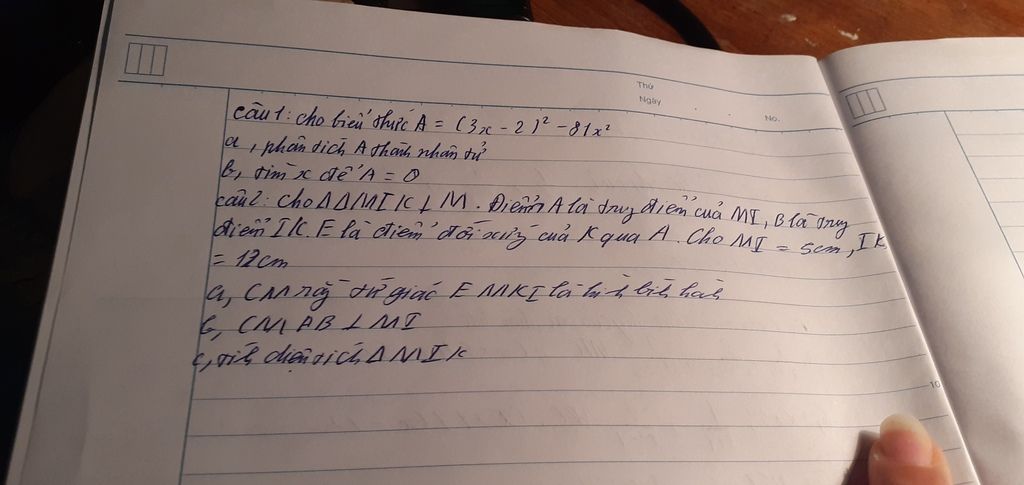 Thứ
Ngày
No.
câu 1: cho biểu thức A = (3x - 2)² - 81x²
a, phân tích A thành nhân tử
b, tìm x để A = 0
câu 2: cho Δ ΔMIK ⊥ M. Điểm A là trug điểm của MI, B là trug
điểm IK. E là điểm đối xứg của K qua A. Cho MI = 5cm, IK
= 12cm
a, CM rằg tứ giác EMKI là hìh bìh hàh
b, CM AB ⊥ MI
c, tíh diện tích Δ MIK
10